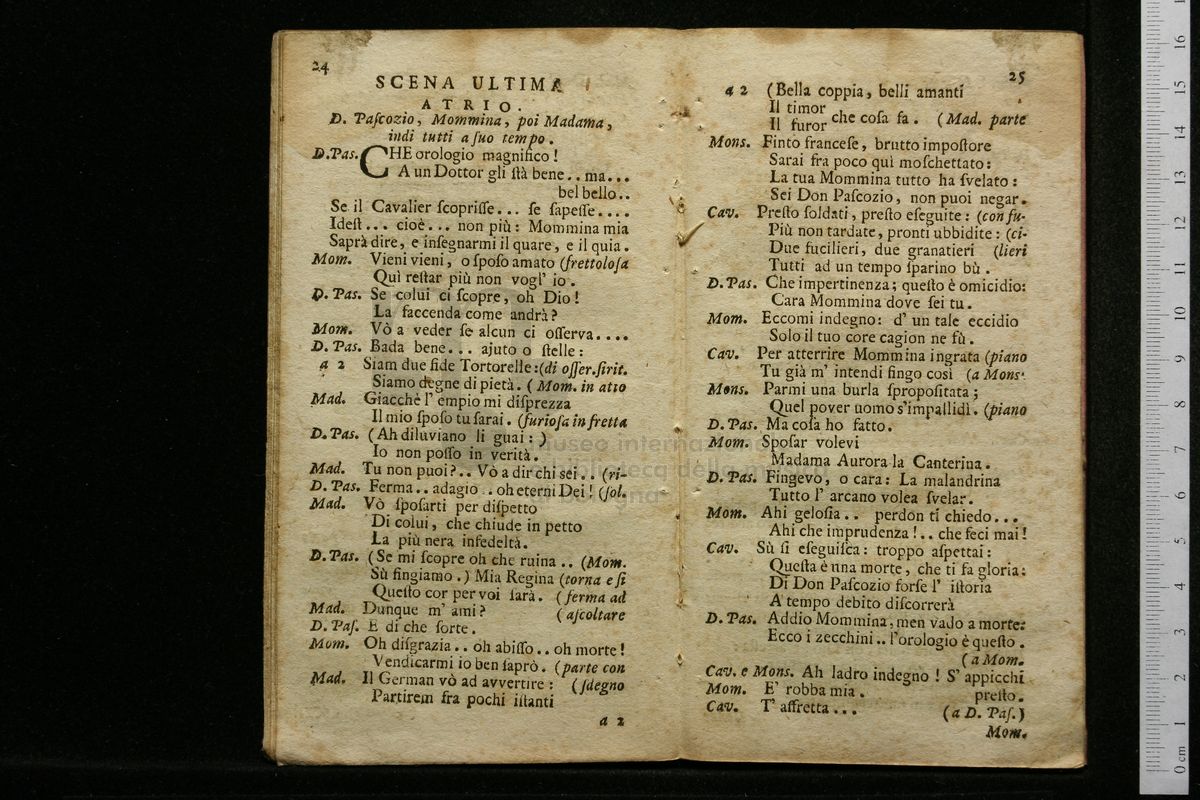 24
SCENA ULTIMA
ATRIO.
D. Paſcozio, Mommina, poi Madama,
indi tutti a ſuo tempo.
D.Pas. CHE orologio magnifico!
A un Dottor gli ſtà bene.. ma...
bel bello..
Se il Cavalier ſcopriſſe... ſe ſapeſſe....
Ideſt... cioè... non più: Mommina mia
Saprà dire, e inſegnarmi il quare, e il quia.
Mom. Vieni vieni, o ſpoſo amato (frettoloſa
Quì reſtar più non vogl' io.
D. Pas. Se colui ci ſcopre, oh Dio!
La faccenda come andrà?
Mom. Vò a veder ſe alcun ci oſſerva....
D. Pas. Bada bene... ajuto o ſtelle:
a 2 Siam due fide Tortorelle:(di oſſer.ſirit.
Siamo degne di pietà. (Mom. in atto
Mad. Giacchè l' empio mi diſprezza
Il mio ſpoſo tu ſarai. (furioſa in fretta
D. Pas. (Ah diluviano li guai:)
Io non poſſo in verità.
Mad. Tu non puoi?.. Vò a dir chi sei.. (ri-
D. Pas. Ferma.. adagio.. oh eterni Dei! (ſol.
Mad. Vò ſpoſarti per diſpetto
Di colui, che chiude in petto
La più nera infedeltà.
D. Pas. (Se mi ſcopre oh che ruina.. (Mom.
Sù fingiamo.) Mia Regina (torna e ſi
Queſto cor per voi ſarà. (ferma ad
Mad. Dunque m' ami? (aſcoltare
D. Paſ. E di che ſorte.
Mom. Oh diſgrazia.. oh abiſſo.. oh morte!
Vendicarmi io ben ſaprò. (parte con
Mad. Il German vò ad avvertire: (ſdegno
Partirem fra pochi iſtanti
a 2
25
a 2 (Bella coppia, belli amanti
Il timor
Il furor che coſa fa. (Mad. parte
Mons. Finto franceſe, brutto impoſtore
Sarai fra poco quì moſchettato:
La tua Mommina tutto ha ſvelato:
Sei Don Paſcozio, non puoi negar.
Cav. Preſto ſoldati, preſto eſeguite: (con fu-
Più non tardate, pronti ubbidite: (ci-
Due fucilieri, due granatieri (lieri
Tutti ad un tempo ſparino bù.
D. Pas. Che impertinenza; queſto è omicidio:
Cara Mommina dove ſei tu.
Mom. Eccomi indegno: d' un tale eccidio
Solo il tuo core cagion ne fù.
Cav. Per atterrire Mommina ingrata (piano
Tu già m' intendi fingo così (a Mons.
Mons. Parmi una burla ſpropoſitata;
Quel pover uomo s'impallidì. (piano
D. Pas. Ma coſa ho fatto.
Mom. Spoſar volevi
Madama Aurora la Canterina.
D. Pas. Fingevo, o cara: La malandrina
Tutto l' arcano volea ſvelar.
Mom. Ahi geloſia.. perdon ti chiedo...
Ahi che imprudenza!.. che feci mai!
Cav. Sù ſi eſeguiſca: troppo aſpettai:
Queſta è una morte, che ti fa gloria:
Di Don Paſcozio forſe l' iſtoria
A tempo debito diſcorrerà
D. Pas. Addio Mommina, men vado a morte:
Ecco i zecchini.. l'orologio è queſto.
(a Mom.
Cav. e Mons. Ah ladro indegno! S' appicchi
Mom. E' robba mia. preſto.
Cav. T' affretta... (a D. Paſ.)
Mom.